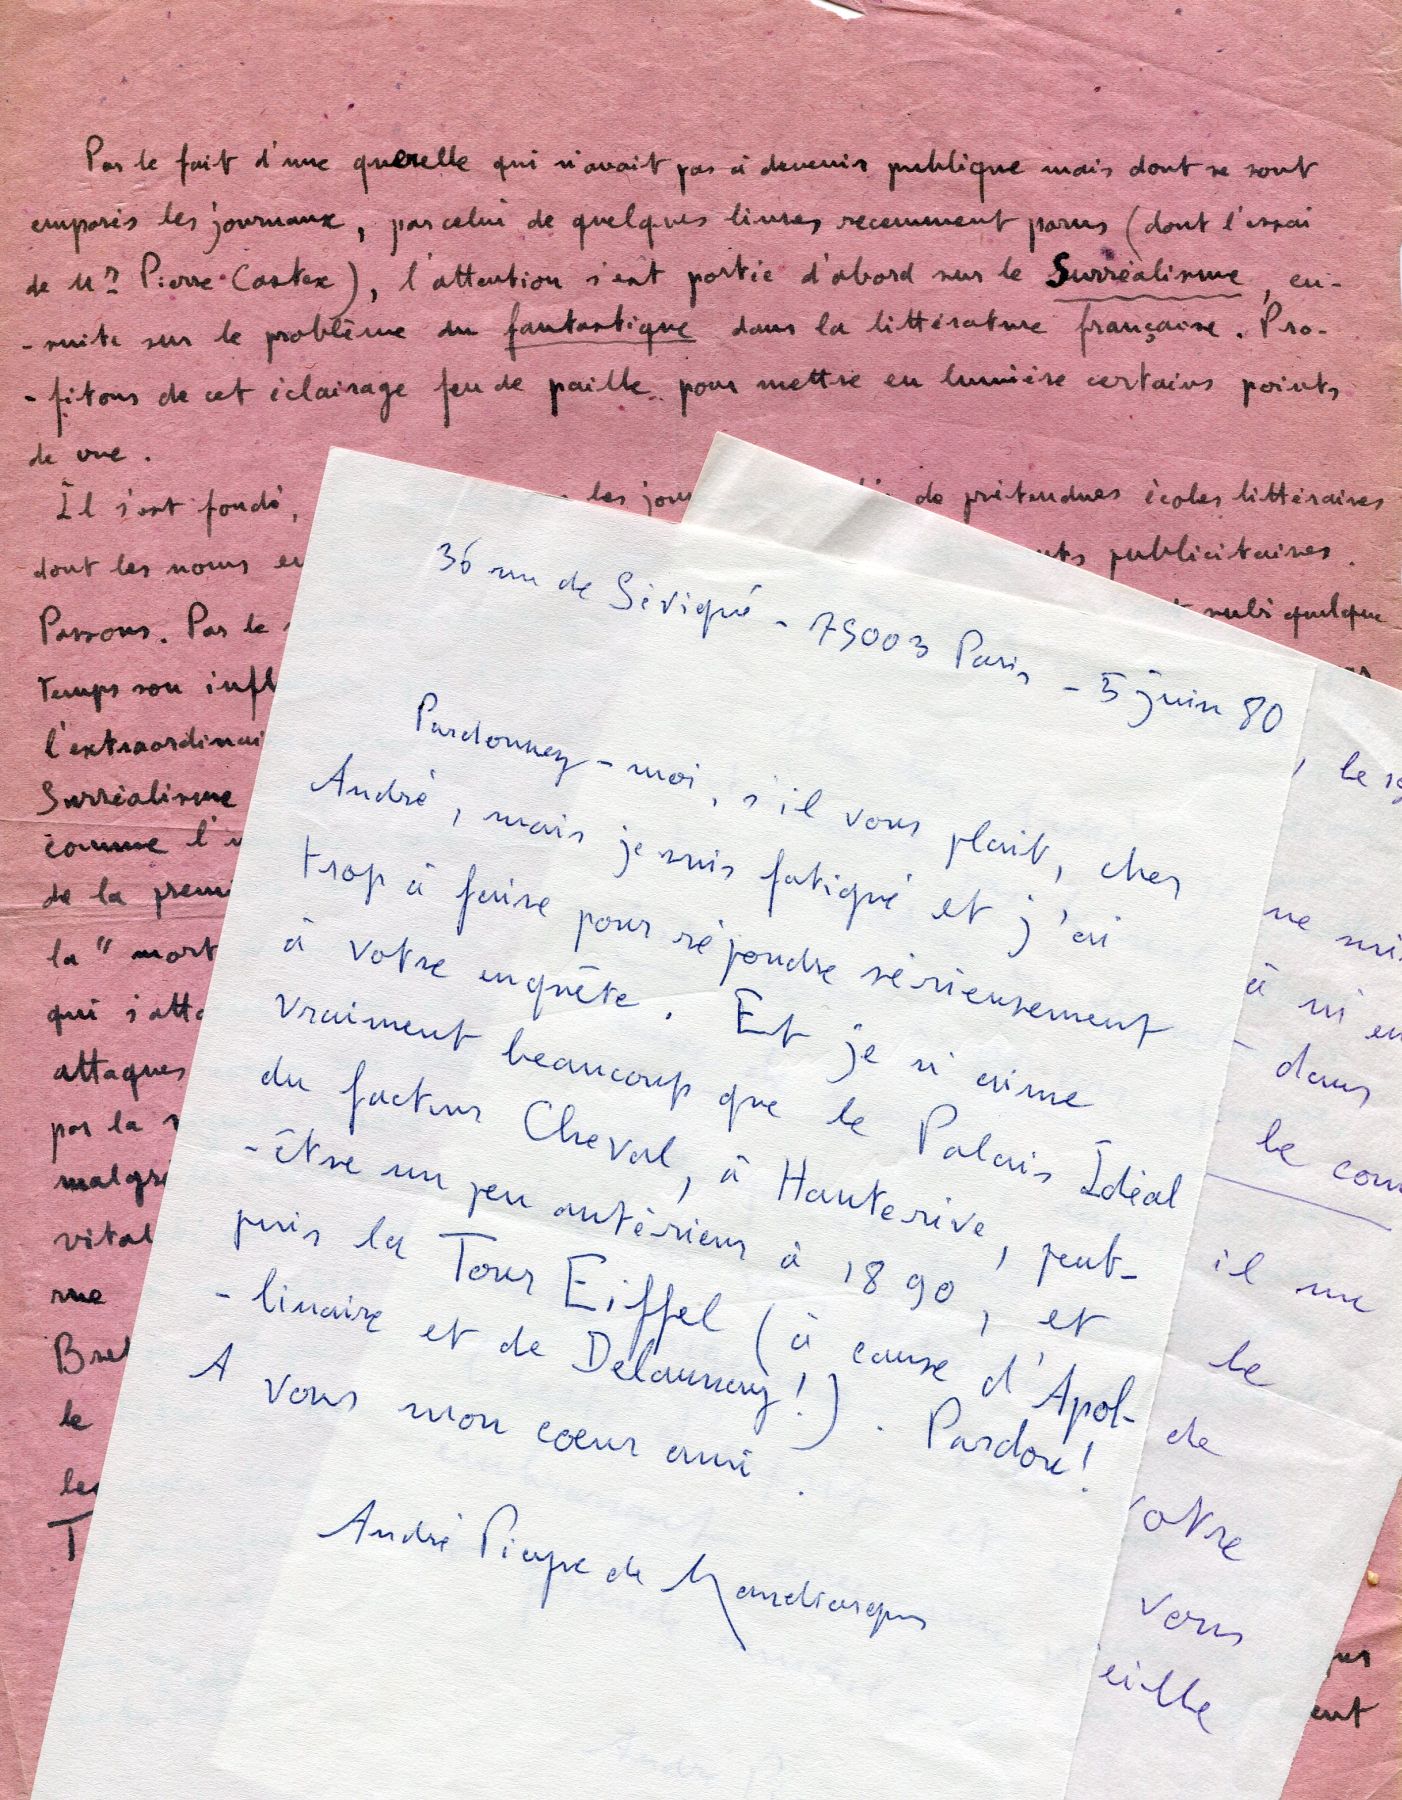 Par le fait d'une querelle qui n'avait pas à devenir publique mais dont se sont
emparés les journaux, par celui de quelques livres recemment parus (dont l'essai
de Mr Pierre Castex), l'attention s'est portée d'abord sur le Surréalisme, en-
-suite sur le problème du fantastique dans la littérature française. Pro-
-fitons de cet éclairage feu de paille pour mettre en lumière certains points
de vue.
Il s'est fondé, les jou de prétendues écoles littéraires
dont les noms en ts publicitaires.
Passons. Par le subi quelque
temps son infl
l'extraordinai
Surréalisme
comme l'
de la premi
la "mort
qui s'atta
attaques
par la
malgré
vital
rue
Bret
le
les
T
36 rue de Sévigné - 75003 Paris - 5 juin 80
Pardonnez-moi, s'il vous plait, cher
André, mais je suis fatigué et j'ai
trop à faire pour répondre sérieusement
à votre enquête. Et je n'aime
vraiment beaucoup que le Palais Idéal
du facteur Cheval, à Hauterive, peut-
-être un peu antérieur à 1890, et
puis la Tour Eiffel (à cause d'Apol-
-linaire et de Delaunay!). Pardon!
A vous mon coeur ami.
André Pieyre de Mandiargues
, le 19
ne sui
à ni en
dans
le com
il me
le
de
votre
vous
eille
ent